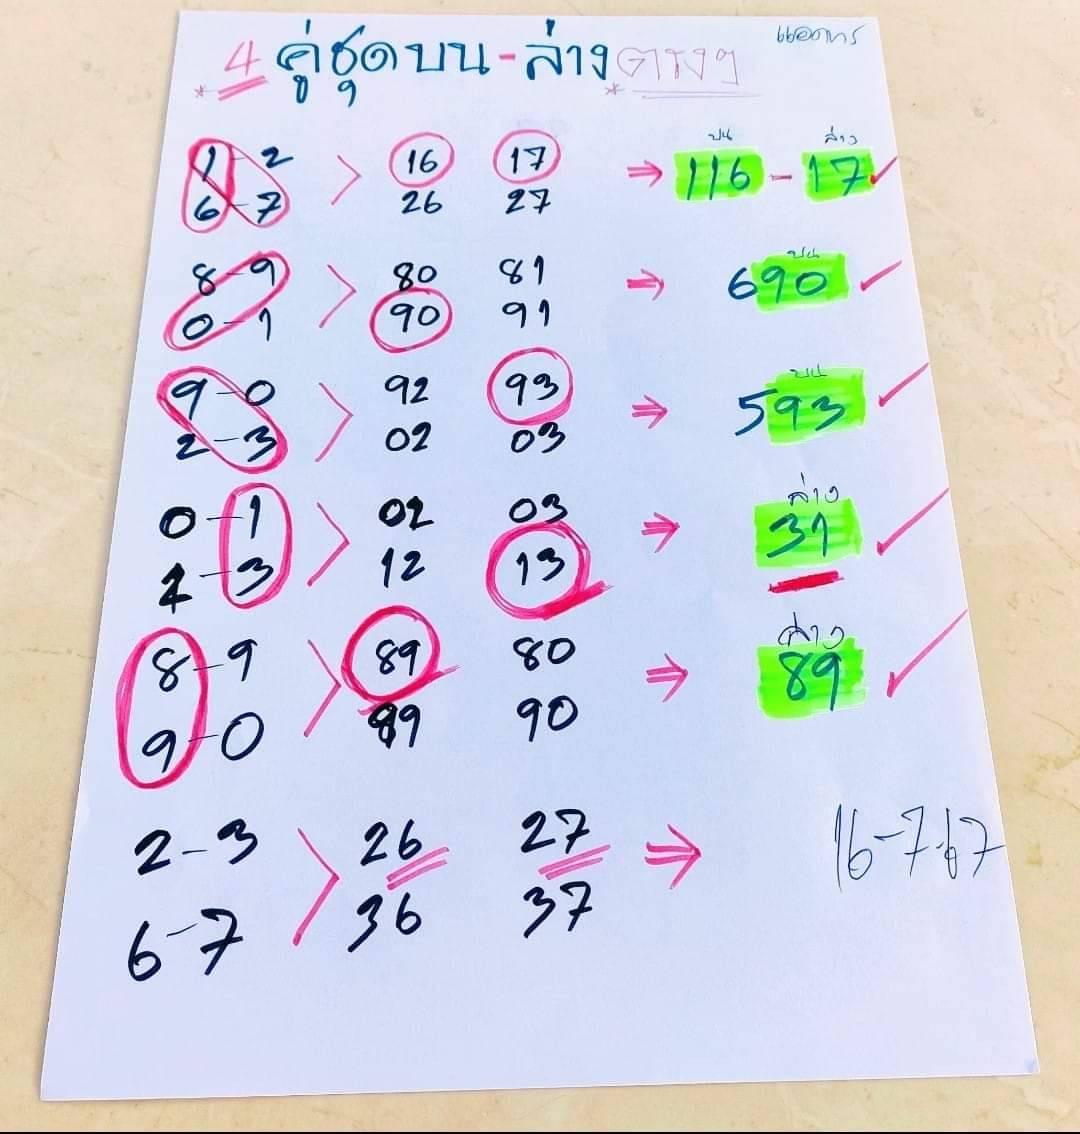 4 คู่ชุดบน-ล่าง ตรงๆ
บน ล่าง
1-2 > 16 17 ⇒ 116 - 17 ✓
6-7 26 27
บน
8-9 > 80 81 ⇒ 690 ✓
0-1 90 91
บน
9-0 > 92 93 ⇒ 593 ✓
2-3 02 03
ล่าง
0-1 > 02 03 ⇒ 31 ✓
2-3 12 13
ล่าง
8-9 > 89 80 ⇒ 89 ✓
9-0 99 90
2-3 > 26 27 ⇒ 16-7-67
6-7 36 37